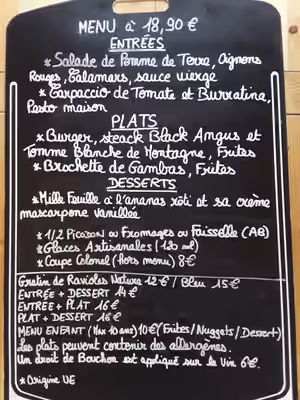 MENU à 18,90 €
ENTRÉES
* Salade de Pomme de Terre, Oignons
Rouges, Calamars, sauce vierge
* Carpaccio de Tomate et Burratina,
Pesto maison
PLATS
* Burger, steack Black Angus et
Tomme Blanche de Montagne, Frites
* Brochette de Gambas, Frites
DESSERTS
* Mille Feuille à l'ananas rôti et sa crème
mascarpone vanillée
* 1/2 Picodon ou Fromages ou Faisselle (AB)
* Glaces Artisanales (120 ml)
* Coupe Colonel (Hors menu) 8€
Gratin de Ravioles Nature 12€ / Bleu 15€
ENTRÉE + DESSERT 14€
ENTRÉE + PLAT 16€
PLAT + DESSERT 16€
MENU ENFANT (Max 10 ans) 10€ (Frites/Nuggets/Dessert)
Les plats peuvent contenir des allergènes.
Un droit de Bouchon est appliqué sur le Vin 6€.
* Origine UE